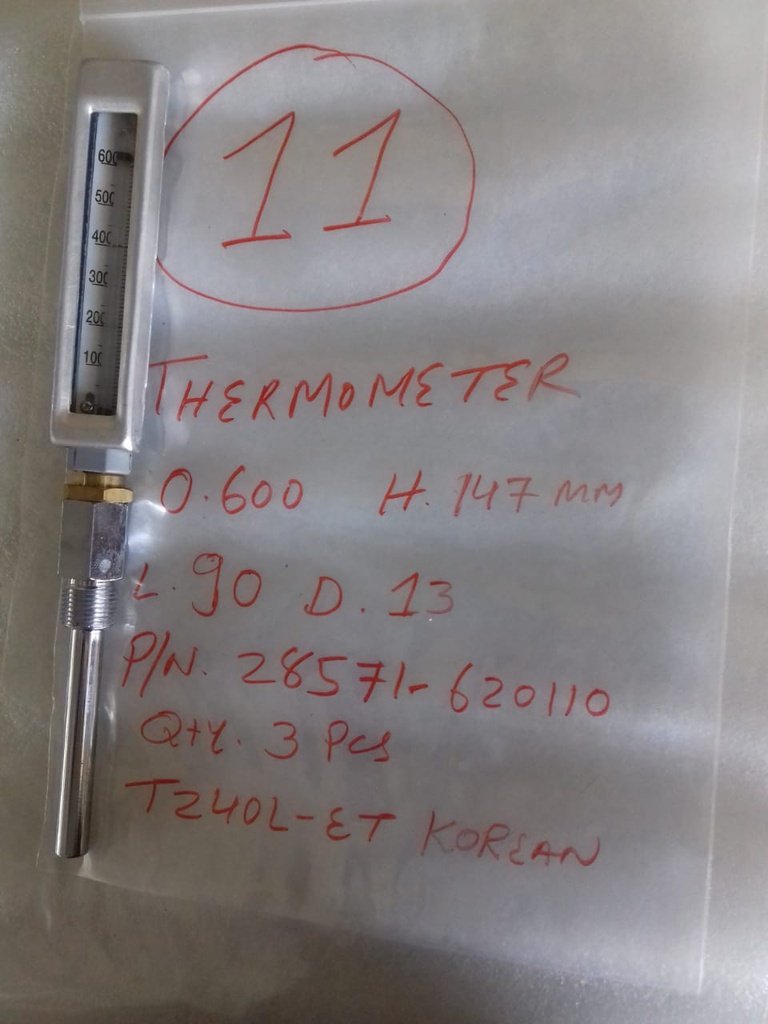 11
600
500
400
300
200
100
THERMOMETER
0.600 H. 147 MM
L. 90 D. 13
P/N. 28571-620110
QTY. 3 PCS
TZ40L-ET KOREAN